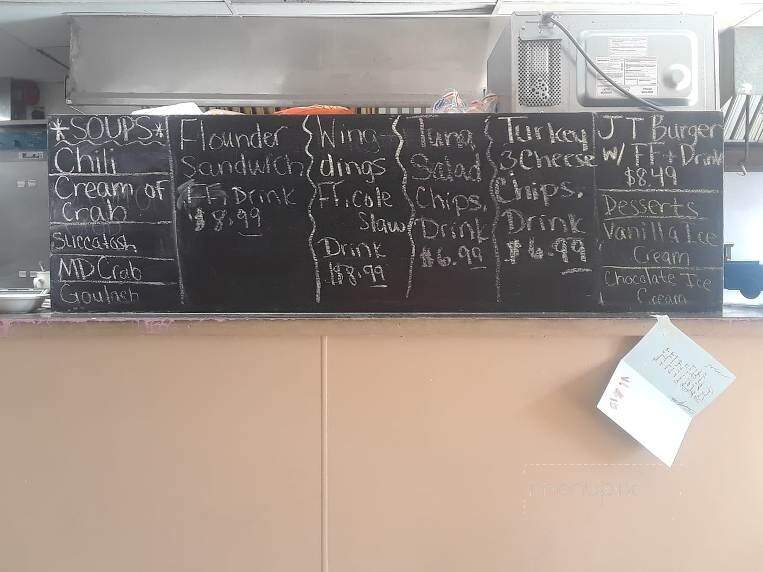 *SOUPS*
Chili
Cream of
Crab
Succatash
MD Crab
Goulash
Flounder
Sandwich
FF Drink
$8.99
Wing-
dings
FF, cole
Slaw
Drink
$8.99
Tuna
Salad
Chips,
Drink
$6.99
Turkey
3 Cheese
Chips,
Drink
$6.99
JT Burger
w/ FF + Drink
$8.49
Desserts
Vanilla Ice
Cream
Chocolate Ice
Cream